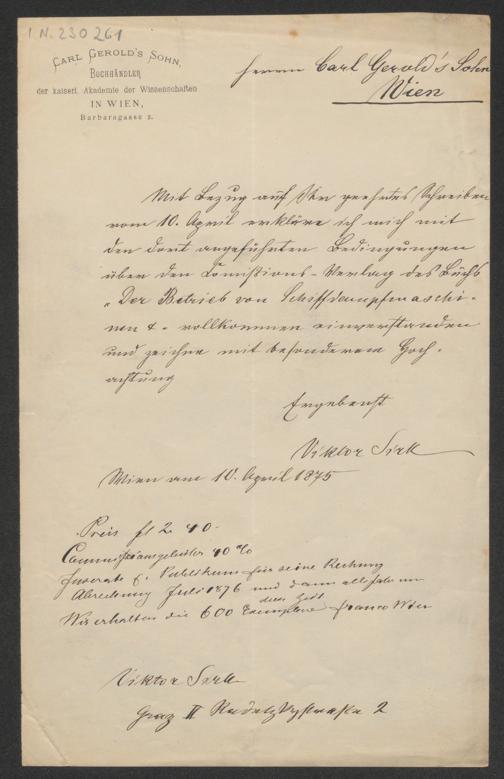 I.N. 230261
CARL GEROLD'S SOHN,
BUCHHÄNDLER
der kaiserl. Akademie der Wissenschaften
IN WIEN,
Barbaragasse 2.
Herrn Carl Gerold's Sohn
Wien
Mit Bezug auf Ihr geehrtes Schreiben
vom 10. April erkläre ich mich mit
den dort angeführten Bedingungen
über den Comissions-Verlag des Buchs
„Der Betrieb von Schiffdampfmaschi-
nen &. vollkommen einverstanden
und zeichne mit besonderem Hoch-
achtung
Ergebenst
Viktor Sirk
Wien am 10. April 1875
Preis fl 2. 40.
Commissionsgebühr 40%
Inserate & Publikum für seine Rechnung
Abrechnung Juli 1876 und dann alle Jahre um
diese Zeit
Wir erhalten die 600 Exemplare franco Wien
Viktor Sirk
Graz II Radetzkystraße 2